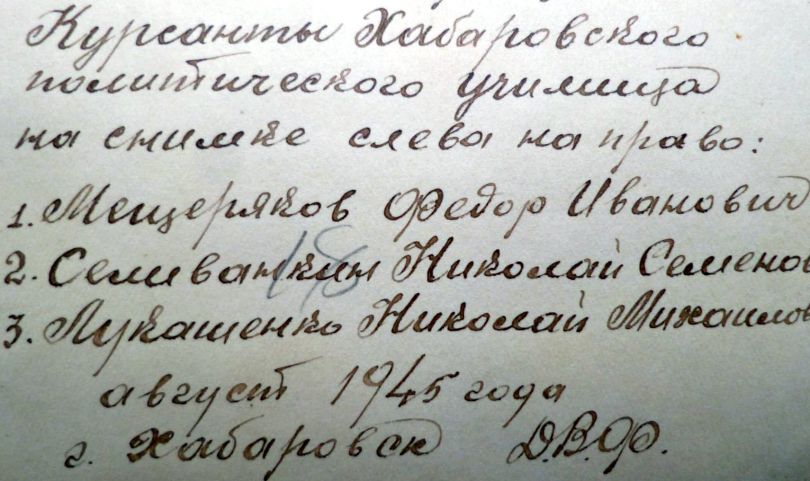 Курсанты Хабаровского
политического училища
на снимке слева на право:
1. Мещеряков Федор Иванович
2. Селиванкин Николай Семенов
3. Лукашенко Николай Михаилов
август 1945 года
г. Хабаровск Д.В.Ф.